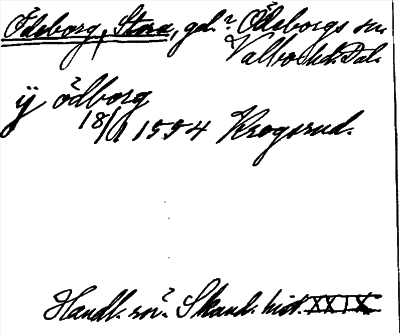 Ödeborg, Stora, gd.? Ödeborgs sn.
Valbo hd. Dal.
ÿ ödborg
18/1 1554 Krogsrud.
Handl. rör. Skand. hist. XXIX